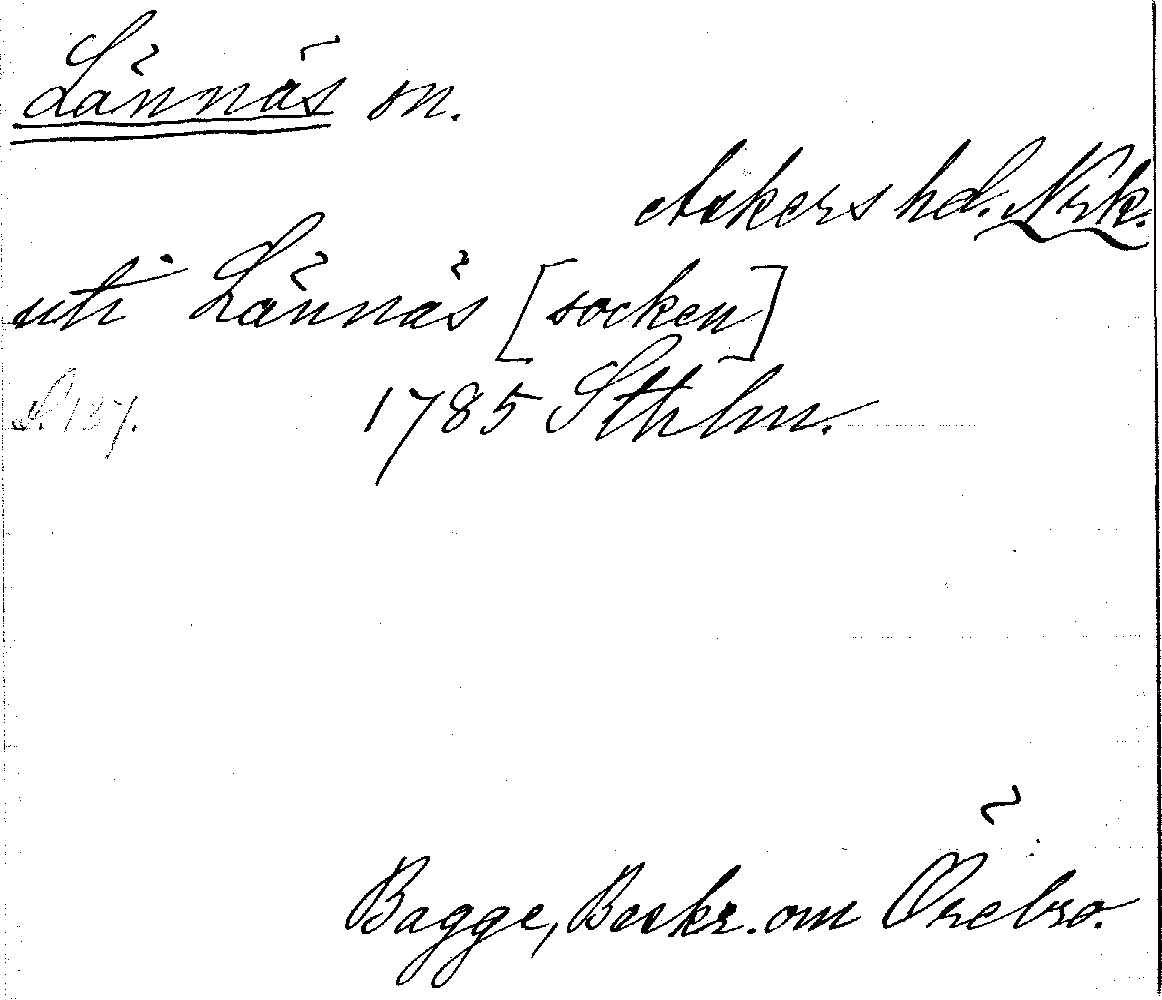 Lännäs sn.
Askers hd. Nrk.
uti Lännäs [socken]
S. 137. 1785 Sthlm.
Bagge, Beskr. om Örebro.